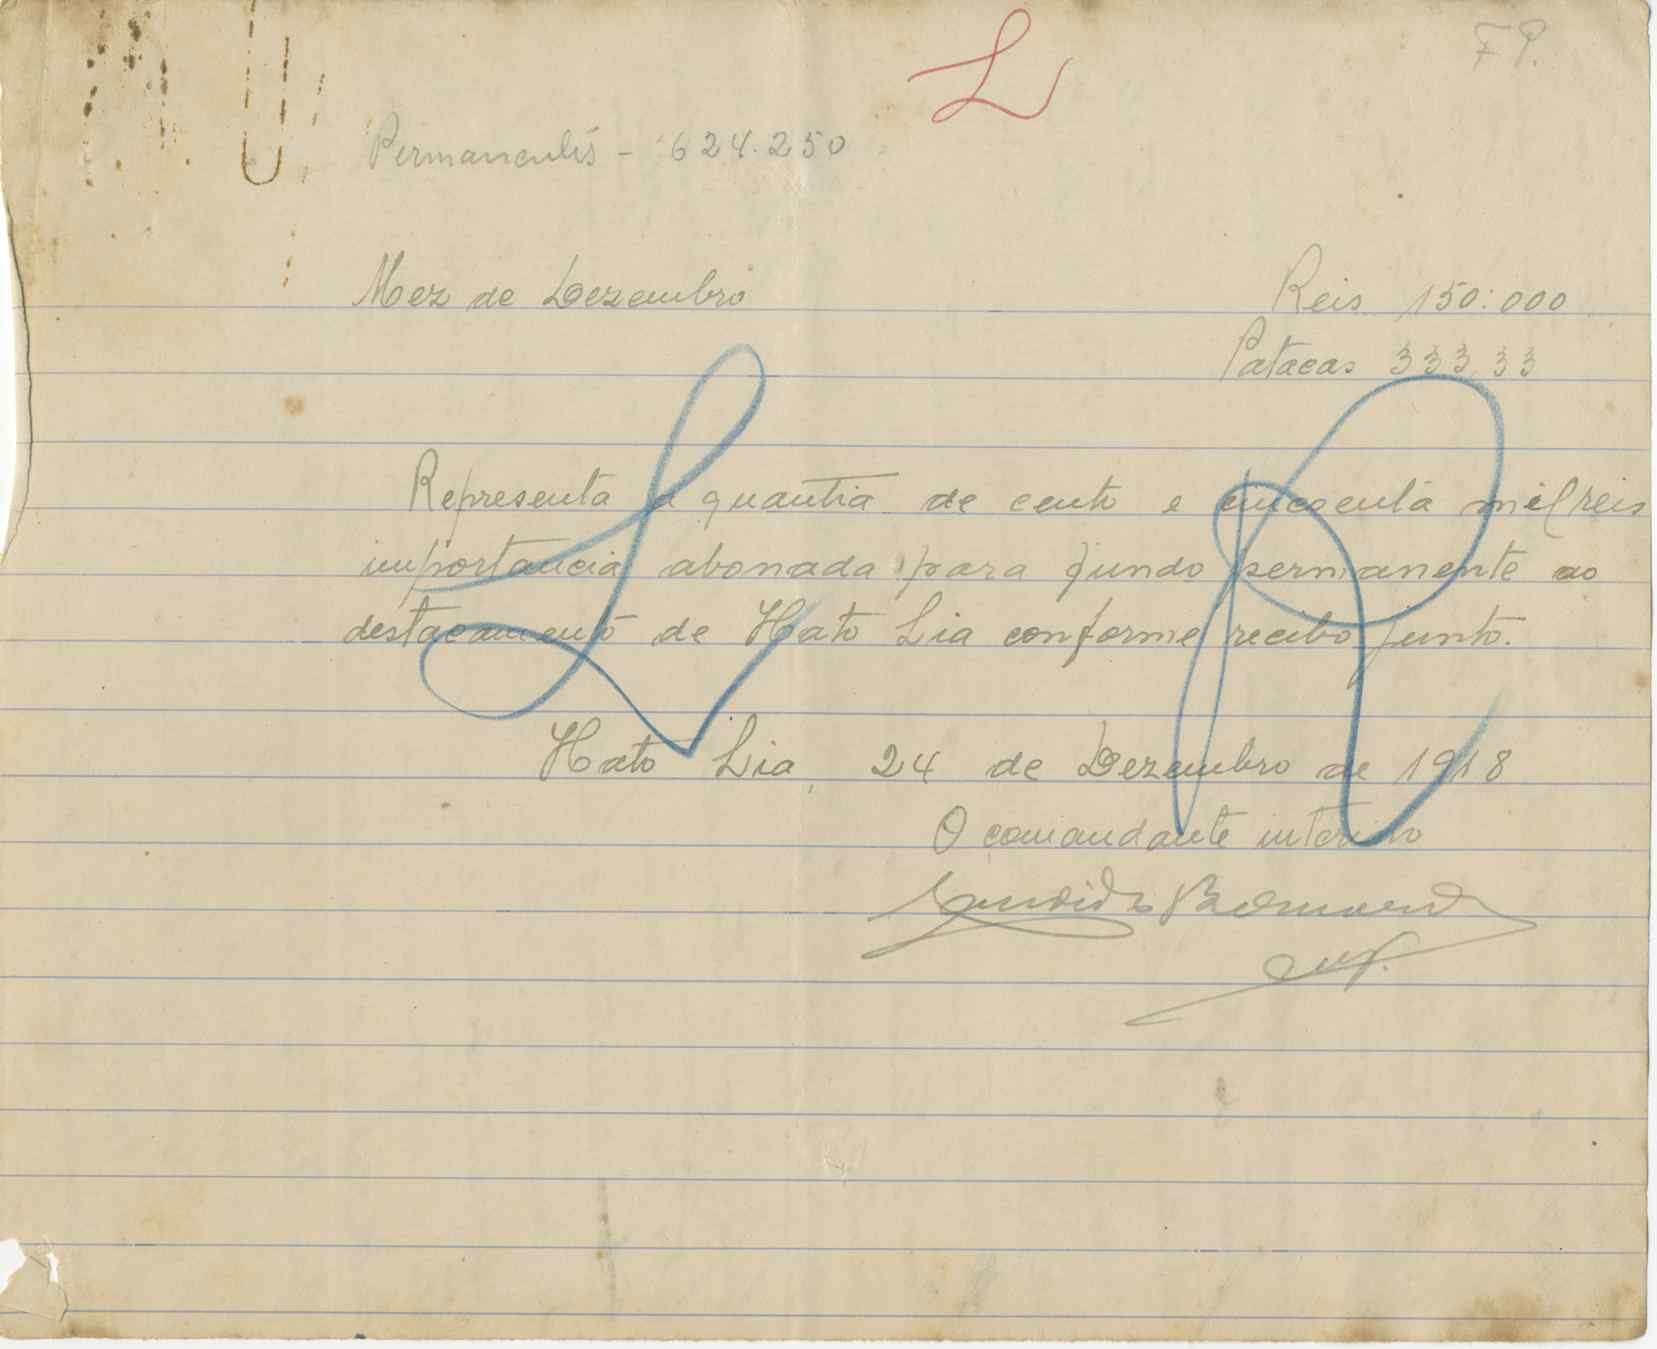 L
F P.
Permanentes - 624.250
Mez de Dezembro
Reis 150:000
Patacas 333,33
Representa a quantia de cento e cincoenta mil reis
importancia abonada para fundo permanente ao
destacamento de Hato Lia conforme recibo junto.
L R
Hato Lia, 24 de Dezembro de 1918
O comandante interino
Candido